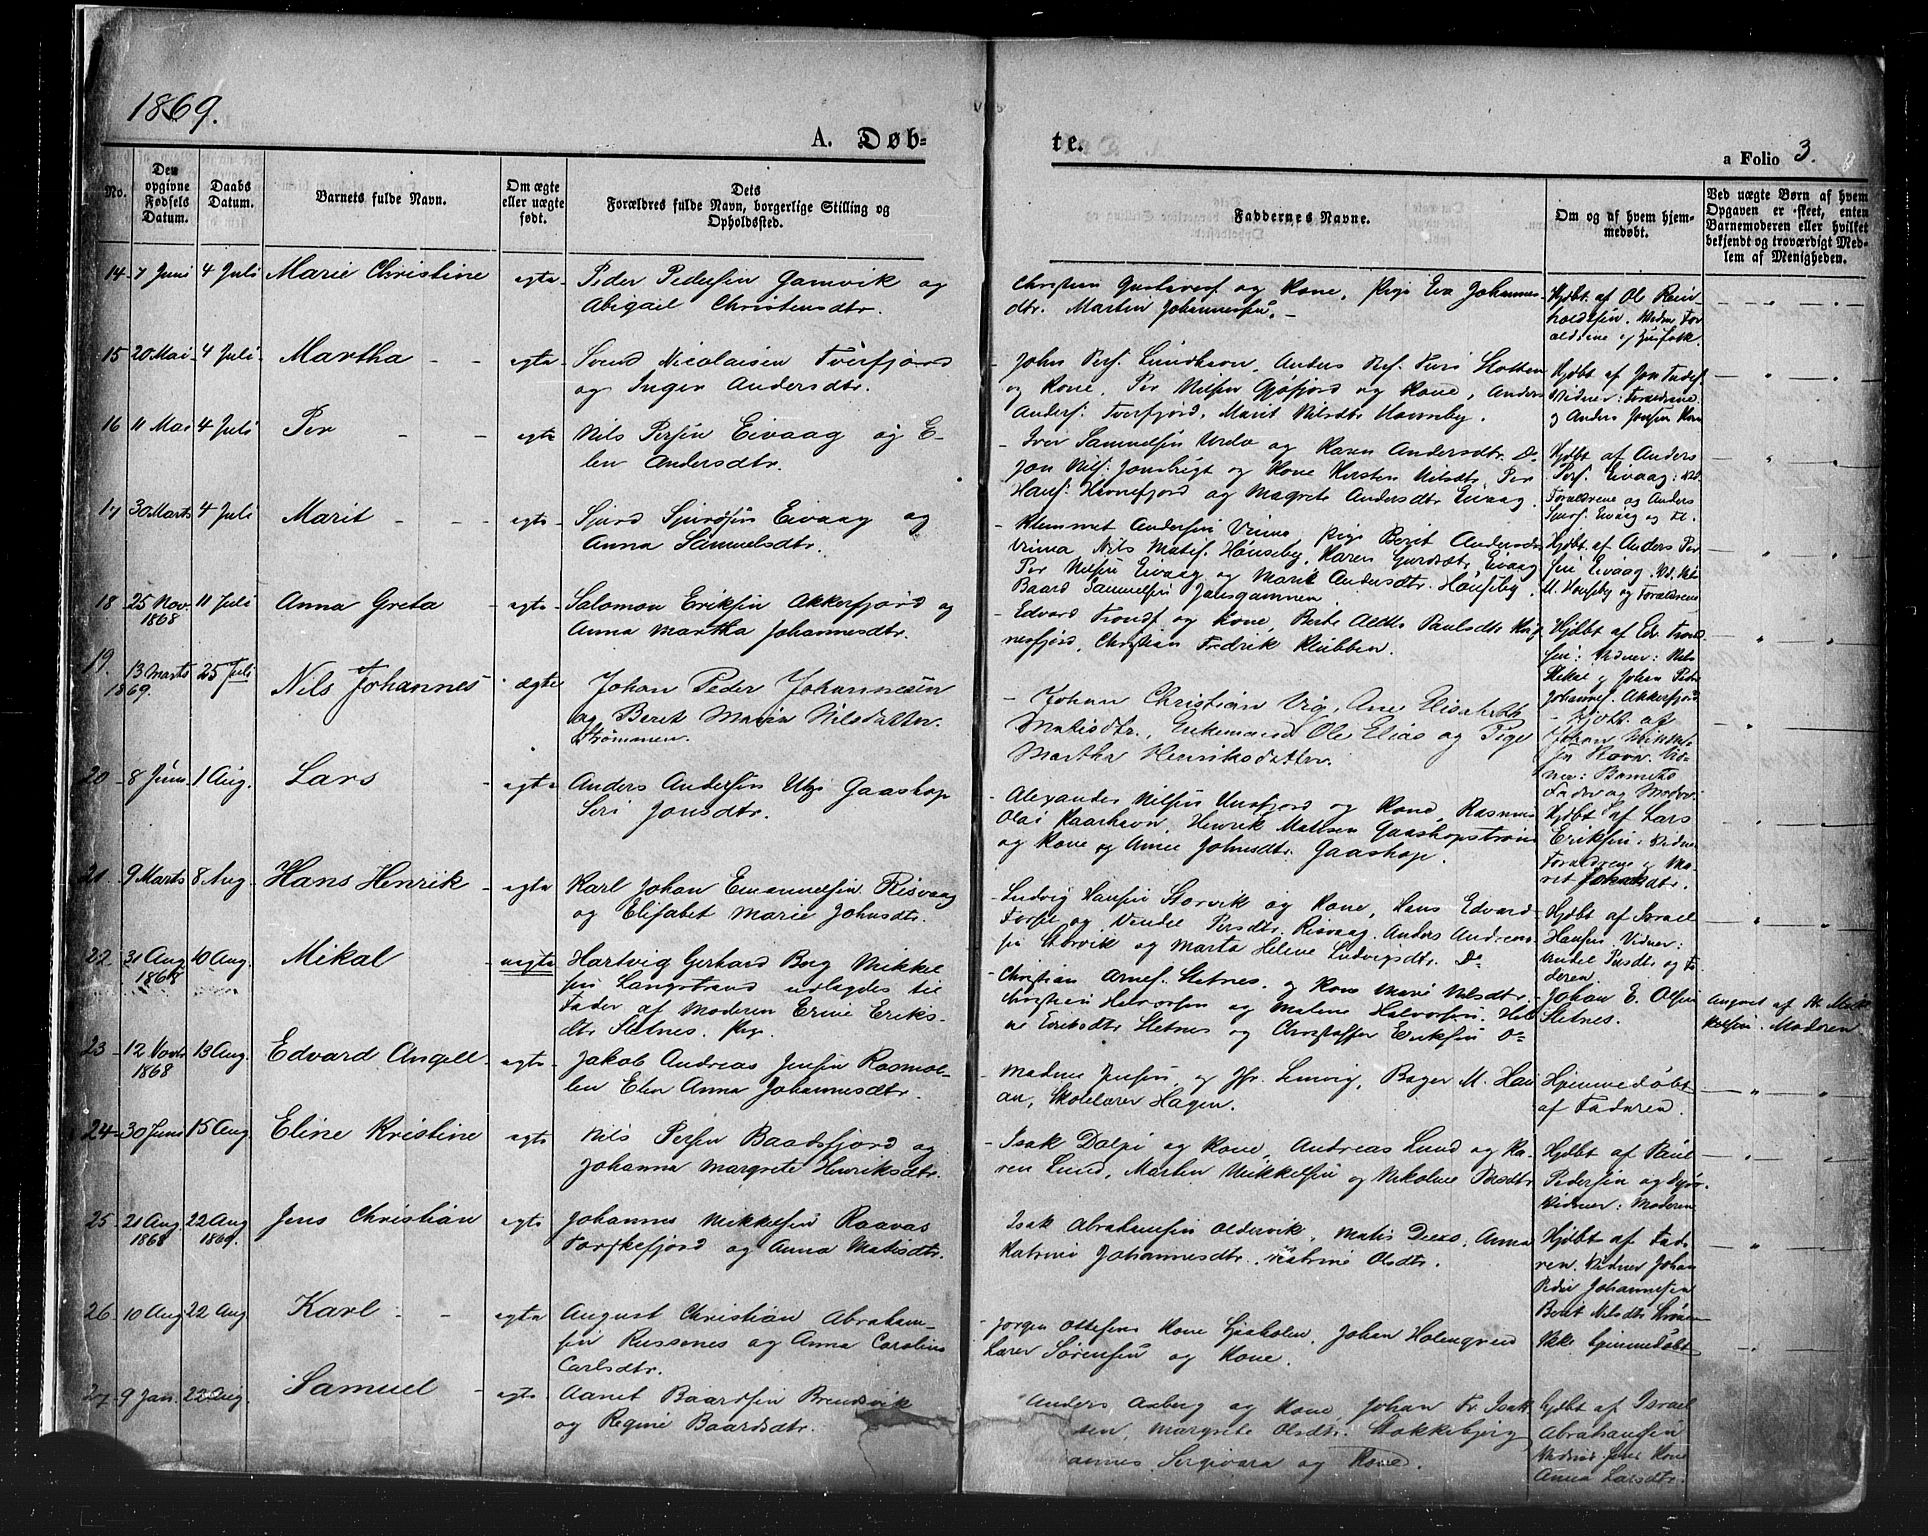 1869.
A. Døb-
te.
a Folio 3.
No.
Den opgivne Fødsels Datum.
Daabs Datum.
Barnets fulde Navn.
Om ægte eller uægte født.
Dets
Forældres fulde Navn, borgerlige Stilling og
Opholdssted.
Faddernes Navne.
Om og af hvem hjem-
medøbt.
Ved uægte Børn af hvem
Opgaven er skeet, enten
Barnemoderen eller hvilket
bekjendt og troværdigt Med-
lem af Menigheden.
14 7 Juni 4 Juli Marie Christine egte Peder Pedersen Gamvik og
Abigael Christensdtr.
Christian Gustavsf og Kone, Pige Eva Johannes-
dtr. Martin Johannessen. -
Hjdbt. af Ol Rein-
holdtsen. Vidner For-
15 20 Mai 4 Juli Martha - - egte Svend Nicolaisen Tverfjord
og Inger Andersdtr.
- Johns Persf. Lundhavn, Anders
og Kone, Per Nilsen Gjøfjord og Kone, Anders
Andersf. Tverfjord, Marit Nilsdtr Hønseby.
Hjdbt af Jon
Vidner: Forældrene
og Anders Jonsen Kone
16 11 Mai 4 Juli Per - - egte Nils Persen Eivaag og E-
len Andersdtr.
- Iver Samuelsen og Karen Andersdtr. Do
Jon Nilsf. og Kone Kirsten Nilsdtr, Per
Hansf. Hønefjord og Magrete Andersdtr Eivaag.
Hjdbt af Anders
Persf. Eivaag:
Forældrene og Anders
Sjursf. Eivaag og Fl.
17 30 Marts 4 Juli Marit - - egte Sjurd Sjurdsen Eivaag og
Anna Samuelsdtr.
- Klemmet Andersen Pige Berit Andersdr
Nils Matisf. Hønseby, Karen Gurdsdtr, Eivaag
Per Nilsen Eivaag og Marit Andersdtr. Hønseby.
Baard Samuelsen
Hjdbt. af Anders Per
sen Eivaag.
M. Hønseby og Forældrene
18 25 Nov. 1868 11 Juli Anna Greta - egte Salomon Eriksen Akkerfjord og
Anna Martha Johannesdtr.
Edvard Trondsf og Kone, Berte Paulsdtr
Christian Fredrik Klubben.
Hjdbt af Edv. Trond-
sen: Vidner: Nils
og Johan Peder
Johannesf. Akkerfjord
19. 13 Marts 1869. 25 Juli Nils Johannes - ægte Johan Peder Johannesen
og Beret Maria Nilsdatter
Strømmen.
- Johan Christian Vig, Ane Elisabeth
Matisdtr., Enkemand Ole Elias og Pige
Martha Henriksdatter.
- Hjdbt. af
Johan Mikkel-
sen
ner: Barnets
Fader og Moder.
20 8 Juni 1 Aug. Lars - egte Anders Andersen Utsi Gaashop
Siri Jonsdtr.
- Alexander Nilsen og Kone, Rasmus
Olai Kaarhavn, Henrik Matisen Gaashopstrøm
og Kone og Anne Johnsdtr. Gaashop.
Hjdbt af Lars
Eriksen: Vidner
Forældrene og Ma-
ret
21 9 Marts 8 Aug. Hans Henrik - egte Karl Johan Emanuelsen Risvaag
og Elisabet Marie Johnsdtr.
- Ludvig Hansen Storvik og Kone, Hans Edvard
og Vendel Persdtr. Risvaag. Anders Andrea-
sen Storvik og Marta Helene Ludvigsdtr. Do
Hjdbt af Israel
Hansen. Vidner:
Vendel Persdtr og Fa-
deren
22 31 Aug 1868 10 Aug. Mikal uegte Hartvig Gerhard Borg Mikkel
sen Langstrand udlagdes til
Fader af Moderen Erine Eriks-
dtr Sletnes. Pige.
- Christian Arnesf. Sletnes. og Kone Marie Nilsdtr.
Christian Halvorsen og Malene Halvorsen, Hel
ne Eriksdtr Sletnes og Christoffer Eriksen Do
- Johan E. Olsen
Sletnes.
Angivet af H. Mik-
kelsen. Moderen
23 12 Novbr 1868 13 Aug. Edvard Angell - egte Jakob Andreas Jensen Rosmol-
len Elen Anna Johannesdtr.
- Madme Jensen, og Jfr. Lunvig, Bager M. Han
an, Skolelærer Hagen.
Hjemmedøbt
af Faderen.
24 30 Juni 15 Aug Eline Kristine egte Nils Persen Baadsfjord og
Johanna Margrete Henriksdtr.
- Isak Dalpi og Kone, Andreas Lund og Ka-
ren Lund, Martin Mikkelsen og Nikoline Persdtr
Hjdbt af Paul
Pedersen
Vidner: Moderen
25 21 Aug 1868 22 Aug 1869. Jens Christian egte Johannes Mikkelsen Raavas
Torskefjord og Anna Matisdtr.
Isak Abrahamsen Oldervik, Matis Anna
Katrine Johannesdtr. Katrine Olsdtr.
Hjdbt af Fade-
ren. Vidner Johan
Peder Johannesen
Beret Nilsdtr Strømmen
26 10 Aug 22 Aug Karl - - egte August Christian Abraham-
sen Russenes og Anna Caroline
Carlsdtr.
- Jørgen Ottesens Kone Johan Holmgren
Lærer Sørensen og Kone.
Ikke hjemmedøbt
27 9 Jan. 22 Aug. Samuel - egte Aanet Baardsen Brendsvik
og Regine Baardsdtr.
Anders Aaberg og Kone, Johan Fr. Isak
sen, Margrete Olsdtr. Stokkebjerg
annes og Kone.
Hjdbt af Israel
Abrahamsen
Vidner Kone
Anna Larsdtr.